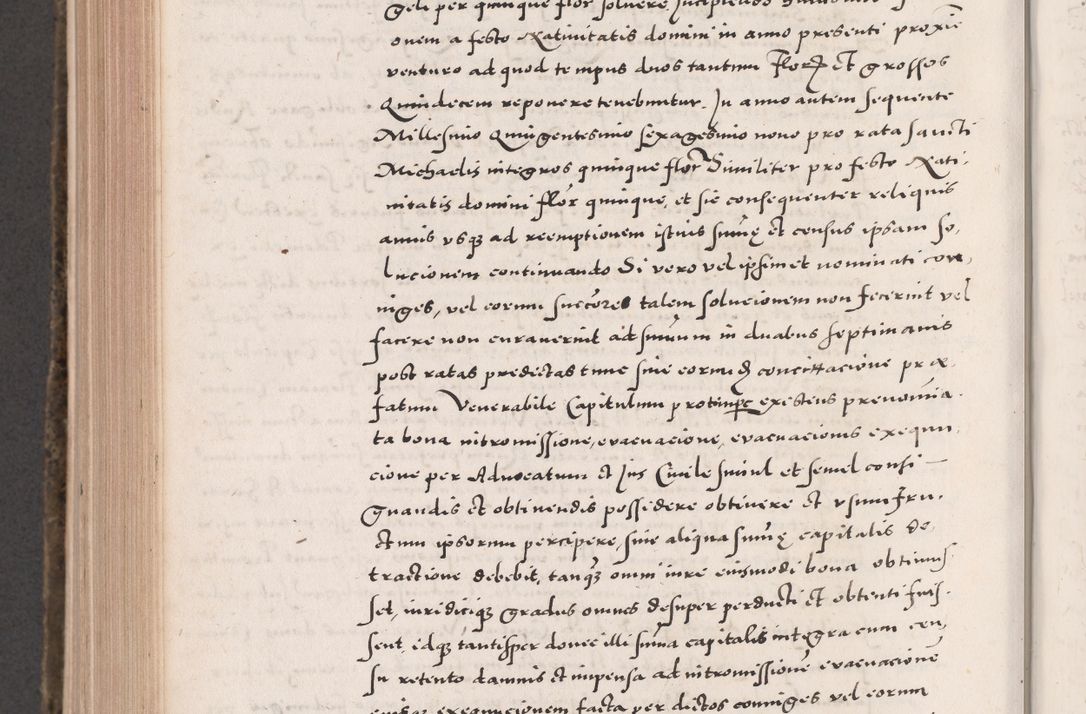 geli per quinque flor solvere, Incipiendo
onem a festo Nativitatis domini in anno presenti proxie
venturo ad quod tempus duos tantum Flor et grossos
Quindecem reponere tenebuntur. In anno autem sequente
Millesimo Quingentesimo sexagesimo nono pro rata sancti
Michaelis integros quinque flor Similiter pro festo Nati-
vitatis domini flor quinque, et sic consequenter reliquis
annis usq ad reemptionem istius sume et census ipsam so,
lucionem continuando Si vero vel ipsimet nominati con,
iuges, vel eorum succores talem solucionem non fecerint vel
facere non curaverint ad sumum in duabus septimanis
post ratas predictas tunc sine eorum concittacione præ-
fatum Venerabile Capitulum protinus existens prenomina-
ta bona intromissione, evacuacione, evacuacionis exequu,
cione per Advocatum et Jus Civile simul et semel consi-
gnandis et obtinendis possidere obtinere et usumfru-
ctum ipsorum percipere, sine aliqua sume capitalis de-
tractione debebit, tanq omni iure eiusmodi bona obtinuis-
set, iuridiciq gradus omnes desuper perducti et obtenti fuis-
sent, idq tantisper donec illi suma capitalis integra cum cen,
su retento damnis et impensa ad intromissione evacuacione
eiusq exequucionem facta per dictos coniuges vel eorum